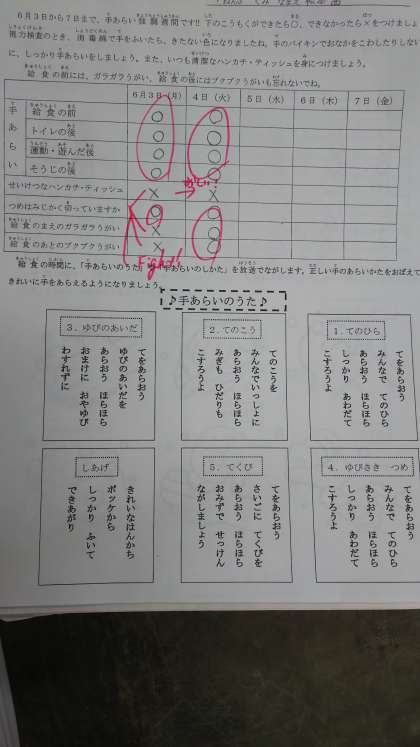 6月3日から7日まで、手あらい強調週間です!! 下のこうもくができたら○、できなかったら×をつけましょう。
視力検査のとき、消毒綿で手をふいたら、きたない色になりましたね。手のバイキンでおなかをこわしたりしない
に、しっかり手あらいをしましょう。また、いつも清潔なハンカチ・ティッシュを身につけましょう。
給食の前には、ガラガラうがい、給食の後にはブクブクうがいも忘れないでね。
6月3日(月) 4日(火) 5日(水) 6日(木) 7日(金)
手あらい
給食の前 ○ ○
トイレの後 ○ ○
運動・遊んだ後 ○ ○
そうじの後 ○ ○
せいけつなハンカチ・ティッシュ × ×
つめはみじかく切っていますか ○ ○
給食のまえのガラガラうがい × ○
給食のあとのブクブクうがい × ○
Fight!!
給食の時間に、「手あらいのうた」「手あらいのしかた」を放送でながします。正しい手のあらいかたをおぼえて
きれいに手をあらえるようになりましょう
♪手あらいのうた♪
1.てのひら
てをあらおう
みんなで てのひら
あらおう ほらほら
しっかり あわだて
こすろうよ
2.てのこう
てのこうを
みんなでいっしょに
あらおう ほらほら
みぎも ひだりも
こすろうよ
3.ゆびのあいだ
てをあらおう
ゆびのあいだを
あらおう ほらほら
おまけに おやゆび
わすれずに
4.ゆびさき つめ
てをあらおう
みんなで てのひら
あらおう ほらほら
しっかり あわだて
こすろうよ
5.てくび
てをあらおう
さいごに てくびを
あらおう ほらほら
おみずで せっけん
ながしましょう
しあげ
きれいなはんかち
ポッケから
しっかり ふいて
できあがり